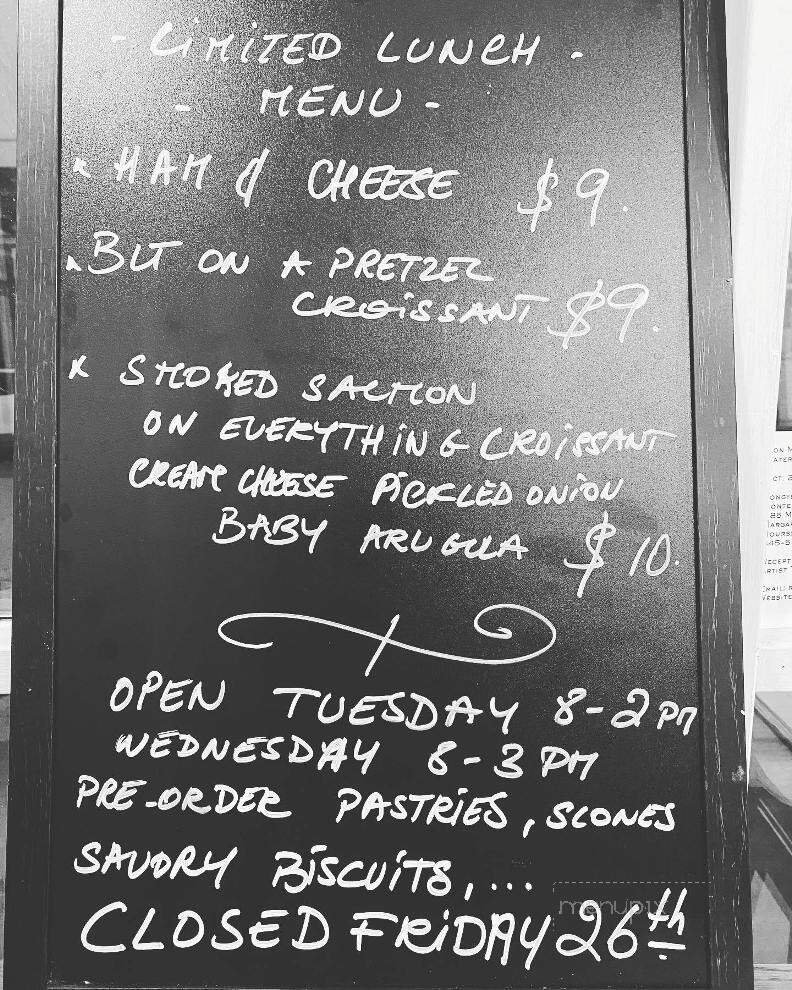 - LIMITED LUNCH -
- MENU -
x HAM & CHEESE $9.
x BLT ON A PRETZEL
CROISSANT $9.
x SMOKED SALMON
ON EVERYTHING CROISSANT
CREAM CHEESE PICKLED ONION
BABY ARUGULA $10.
OPEN TUESDAY 8-2PM
WEDNESDAY 8-3 PM
PRE-ORDER PASTRIES, SCONES
SAVORY BISCUITS, ...
CLOSED FRIDAY 26th
menupix